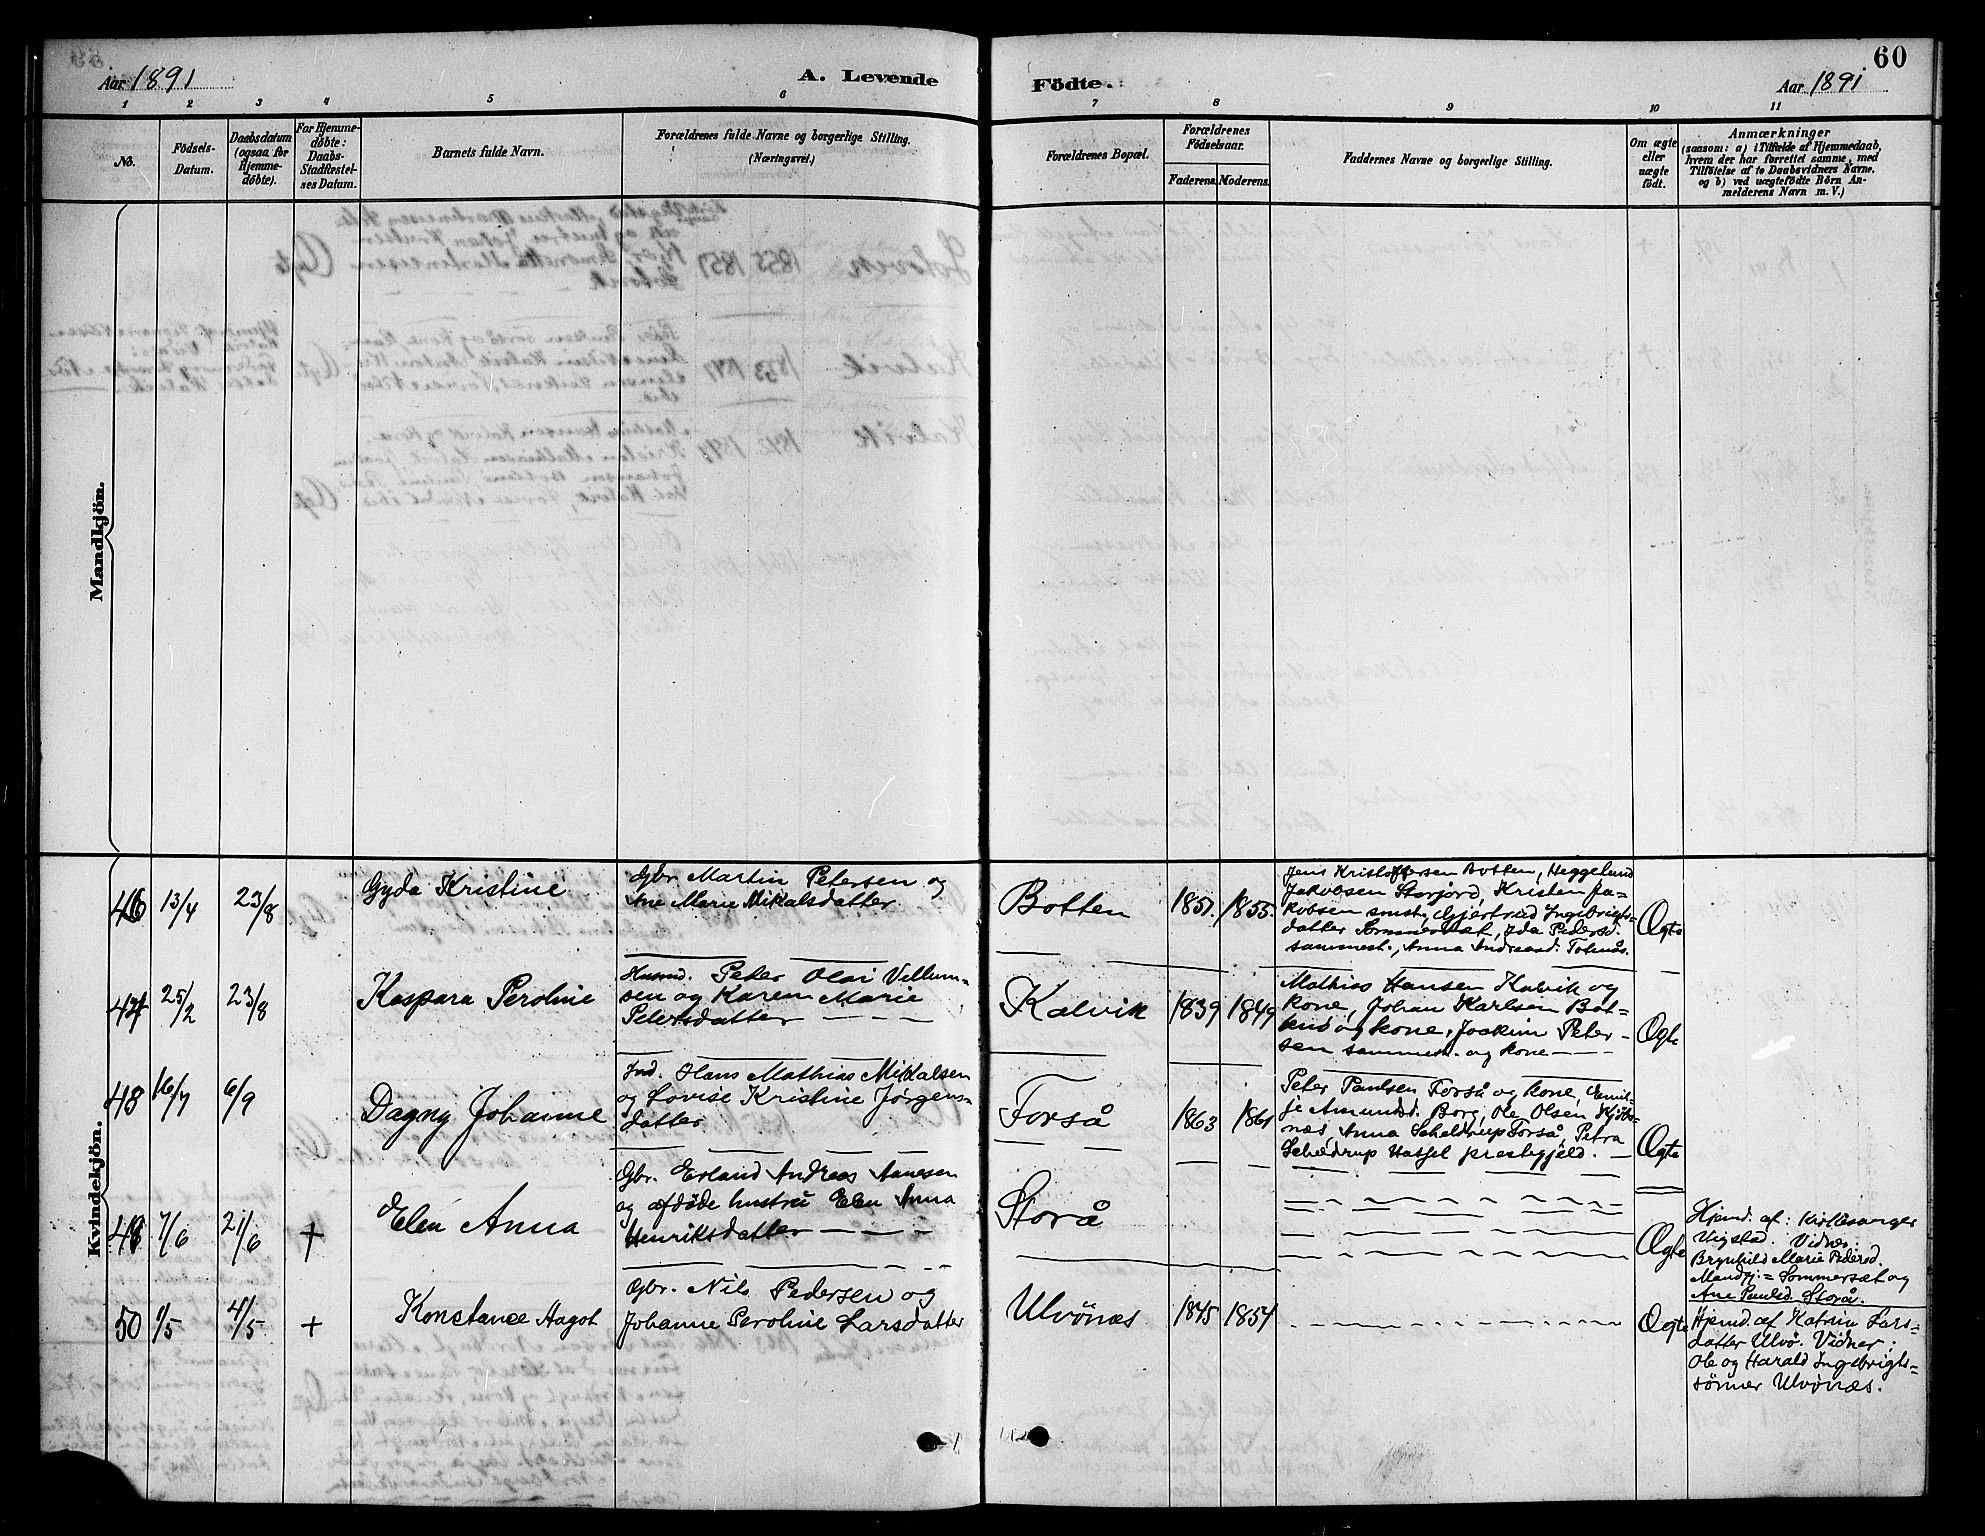 60
Aar 1891
A. Levende
Födte.
Aar 1891
1 2 3 4 5 6 7 8 9 10 11
No.
Födsels-
Datum.
Daabsdatum
(ogsaa for
Hjemme-
døbte).
For Hjemme-
døbte:
Daabs-
Stadfæstel-
ses Datum.
Barnets fulde Navn.
Forældrenes fulde Navne og borgerlige Stilling.
(Næringsvei.)
Forældrenes Bopæl.
Forældrenes
Födselsaar.
Faderens. Moderens.
Faddernes Navne og borgerlige Stilling.
Om ægte
eller
uægte
födt.
Anmærkninger
(saasom: a) i Tilfælde af Hjemmedaab,
hvem der har forrettet samme, med
Tilföielse af to Daabsvidners Navne.
og b) ved uægtefödte Börn An-
melderens Navn m. V.)
Mandkjön.
Kvindekjön.
46 13/4 23/8
Gyda Kristine
Gbr Martin Petersen og
Ane Marie Mikalsdatter
Botten
1857. 1855.
Jens Kristoffersen Botten, Heggelund
Jakobsen Storjord, Kristen Ja-
kobsen smst., Gjertrud Ingebrigts-
datter Sommersæt, Ida Pedersd.
sammest., Anna Andreasd. Totenås.
Ægte
47 25/2 23/8
Kaspara Peroline
Husmd. Peter Olai Villum-
sen og Karen Marie
Petersdatter
Kalvik
1839 1849
Mathias Hansen Kalvik og
kone, Johan Karlsen Bot-
og kone, Joakim Peter-
sen sammest. og kone
Ægte
48 16/7 6/9
Dagny Johanne
Ind. Hans Mathias Mikalsen
og Lovise Kristine Jørgens-
datter
Forså
1863 1861
Peter Paulsen Forså og kone, Emil-
je Amundsd. Borg, Ole Olsen Kjöbs-
næs Anna Scheldrup Forså, Petra
Scheldrup Hassel prestegjeld.
Ægte
7/6 21/6 +
Elen Anna
Gbr. Erland Andreas Aanesen
og afdöde hustru Elen Anna
Henriksdatter
Storå
Ægte
Hjemd. af: Kirkesanger
Vigstad. Vidner:
Brynhild Marie Pedersd.
Sommersæt og
Ane Paulsd. Storå.
50 1/5 4/5 +
Konstance Hagot
Gbr. Nils Pedersen og
Johanne Peroline Larsdatter
Ulvönæs
1845 1854
Ægte
Hjemd. af Katrin Lars-
datter Ulvö. Vidner:
Ole og Harald Ingebrigts-
sönner Ulvönæs.